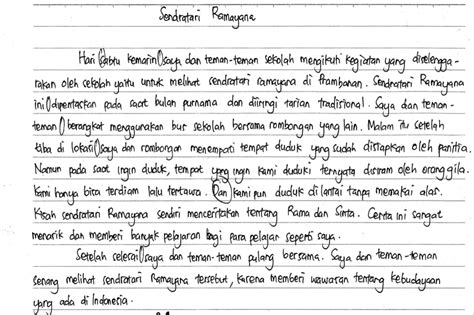 Sendratari Ramayana
Hari Sabtu kemarin saya dan teman-teman sekolah mengikuti kegiatan yang diselengga-
rakan oleh sekolah yaitu untuk melihat sendratari ramayana di Prambanan. Sendratari Ramayana
ini dipentaskan pada saat bulan purnama dan diiringi tarian tradisional. Saya dan teman-
teman berangkat menggunakan bus sekolah bersama rombongan yang lain. Malam itu setelah
tiba di lokasi saya dan rombongan menempati tempat duduk yang sudah disiapkan oleh panitia.
Namun pada saat ingin duduk, tempat yang ingin kami duduki ternyata disiram oleh orang gila.
Kami hanya bisa terdiam lalu tertawa. Dan kami pun duduk di lantai tanpa memakai alas.
Kisah sendratari Ramayana sendiri menceritakan tentang Rama dan Sinta. Cerita ini sangat
menarik dan memberi banyak pelajaran bagi para pelajar seperti saya.
Setelah selesai saya dan teman-teman pulang bersama. Saya dan teman-teman
senang melihat sendratari Ramayana tersebut, karena memberi wawasan tentang kebudayaan
yang ada di Indonesia.